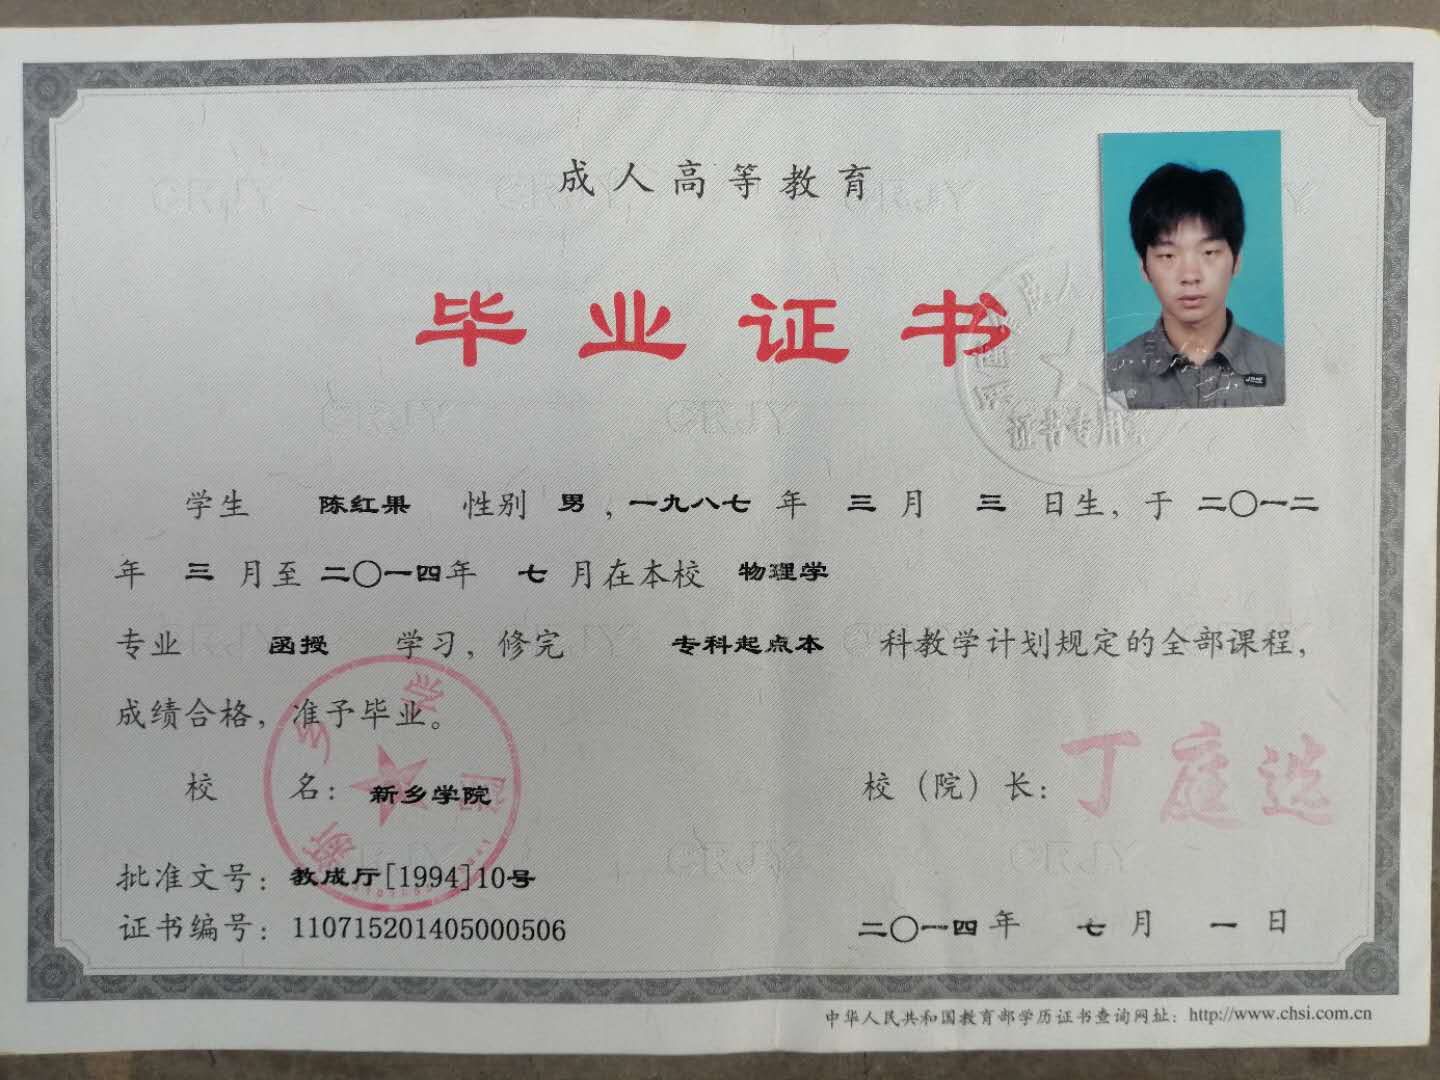 成人高等教育
毕业证书
证书专用
学生 陈红果 性别 男 ,一九八七 年 三 月 三 日生, 于 二〇一二
年 三 月至 二〇一四年 七 月在本校 物理学
专业 函授 学习, 修完 专科起点本 科教学计划规定的全部课程,
成绩合格, 准予毕业。
校 名: 新乡学院
校（院）长: 丁庭选
新乡学院
批准文号: 教成厅[1994]10号
证书编号: 110715201405000506
二〇一四年 七 月 一 日
中华人民共和国教育部学历证书查询网址: http://www.chsi.com.cn